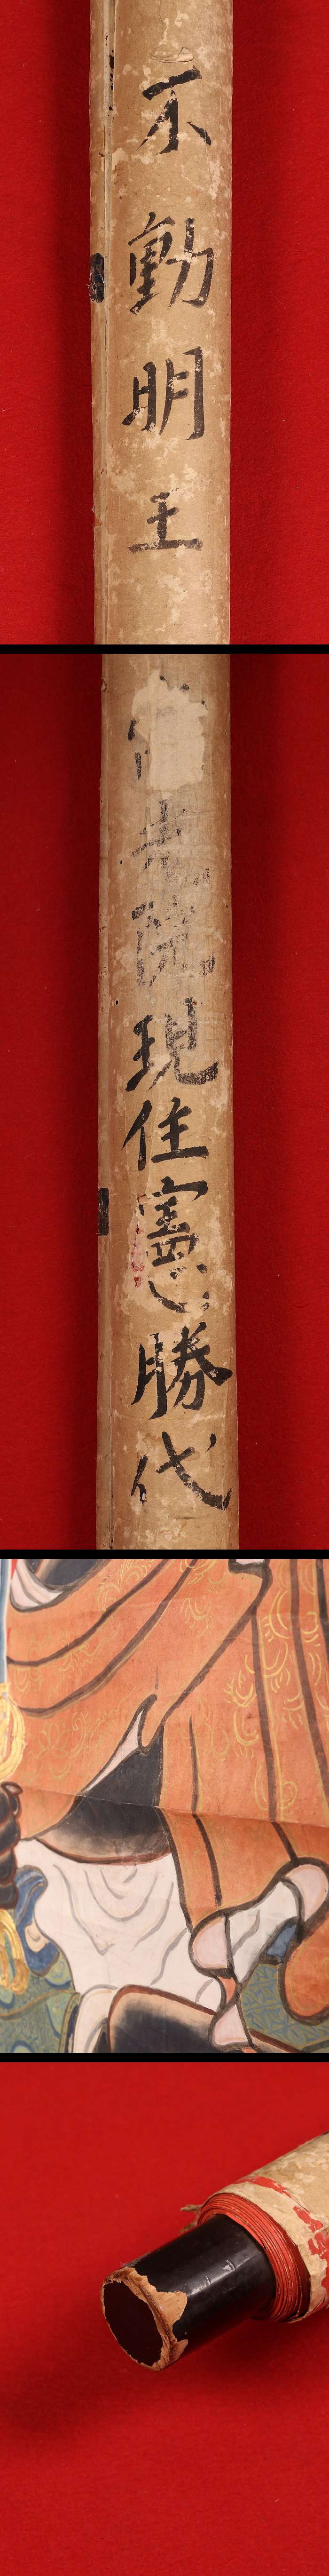 不動明王
院現住憲勝代